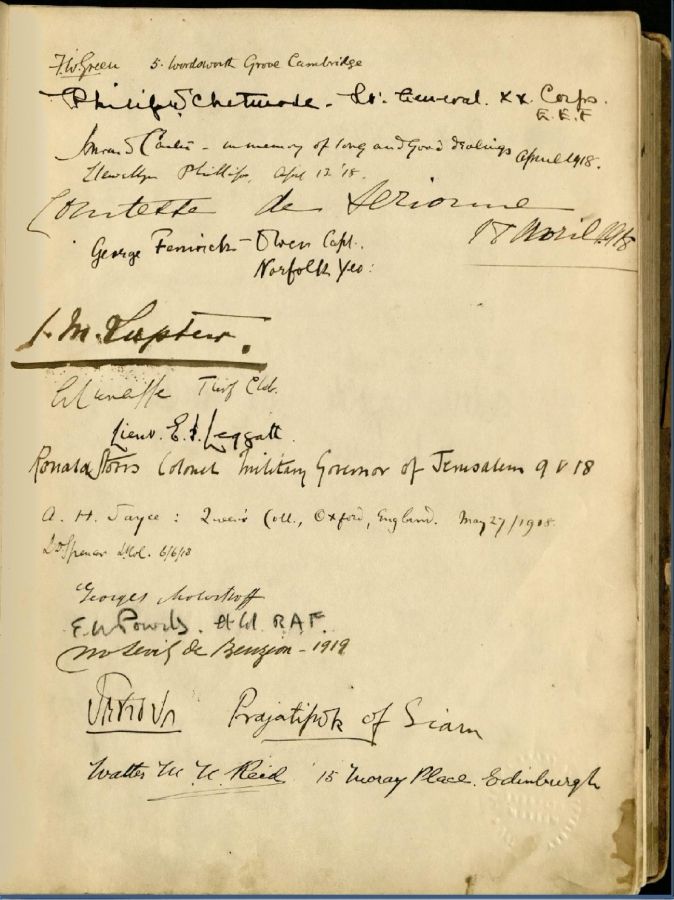 F.W. Green 5. Wordsworth Grove Cambridge
Philip W Chetwode - Lt. General. XX. Corps.
E.E.F
- in memory of long and good dealings April 1918.
Llewellyn Phillips, April 12 '18.
Comtesse de Sérionne
18 Avril 1918
George Fenwick-Owen Capt.
Norfolk Yeo:
Turf Club.
Lieut. E. Leggatt.
Ronald Storrs Colonel Military Governor of Jerusalem 9 V 18
A. H. Sayce : Queen's Coll., Oxford, England. May 27/1918.
Spencer Lt Col. 6/6/18
Georges
de Benzion - 1919
Prajatipok of Siam
Walter M. N. Reid 15 Moray Place. Edinburgh